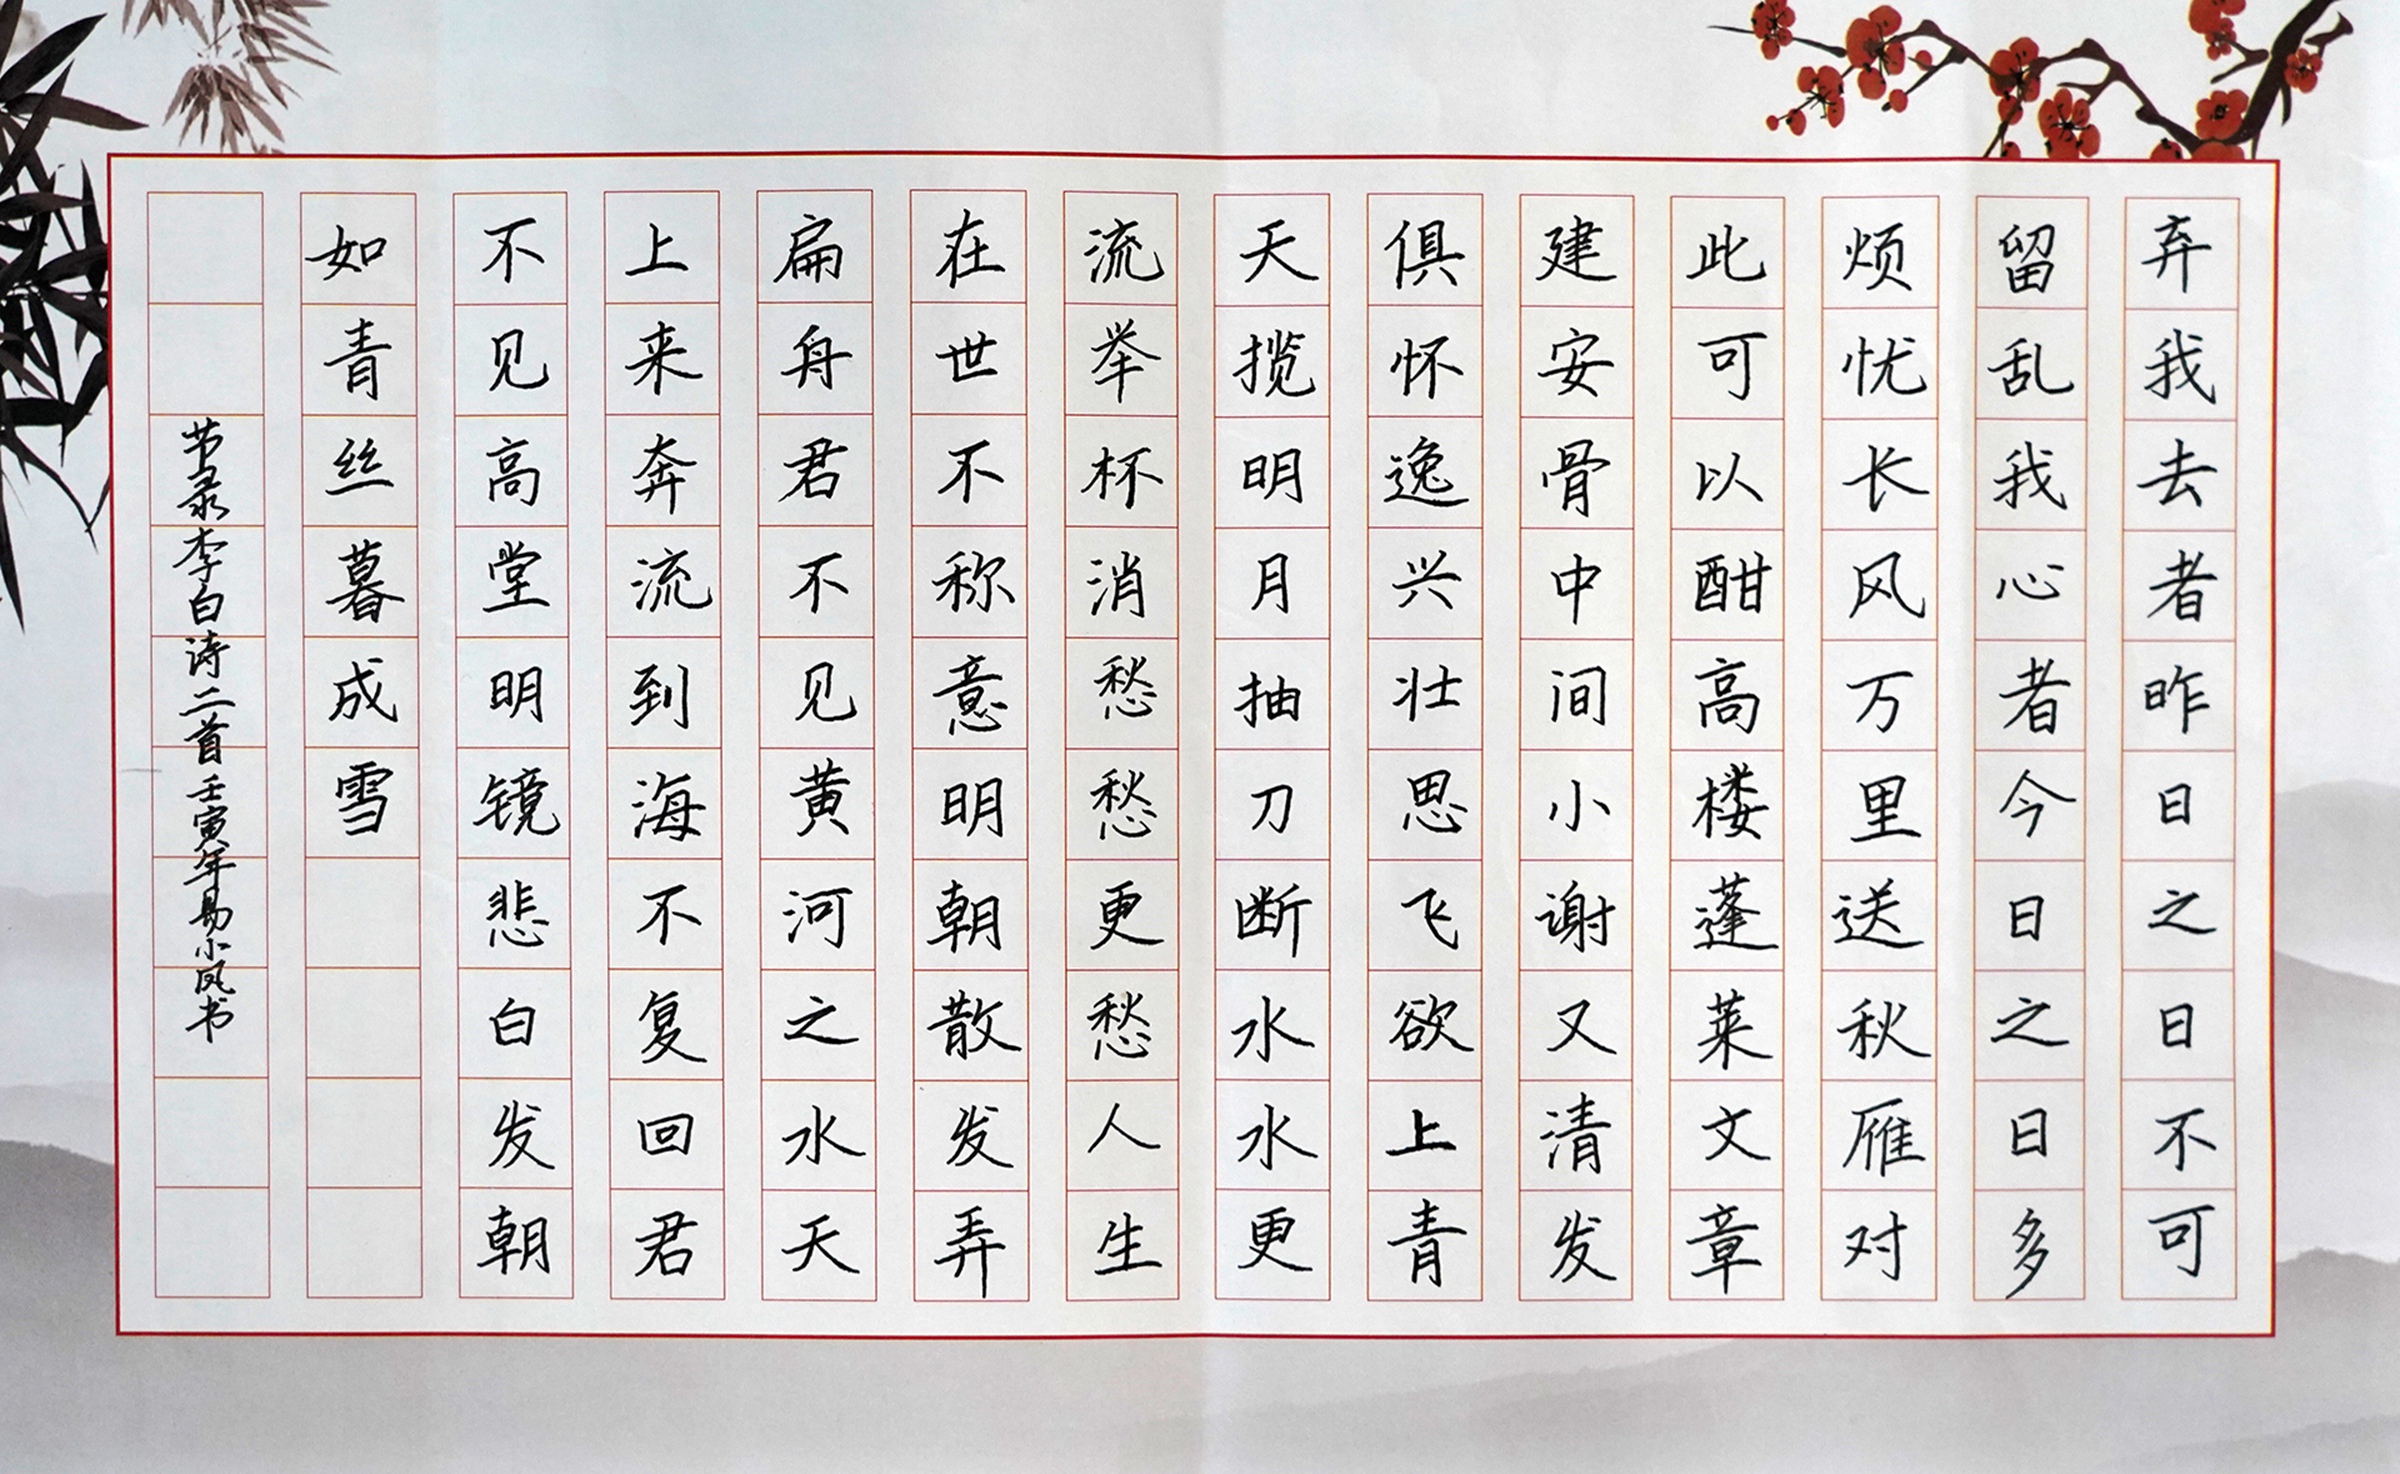 弃我去者昨日之日不可
留乱我心者今日之日多
烦忧长风万里送秋雁对
此可以酣高楼蓬莱文章
建安骨中间小谢又清发
俱怀逸兴壮思飞欲上青
天揽明月抽刀断水水更
流举杯消愁愁更愁人生
在世不称意明朝散发弄
扁舟君不见黄河之水天
上来奔流到海不复回君
不见高堂明镜悲白发朝
如青丝暮成雪
节录李白诗二首壬寅年易小凤书